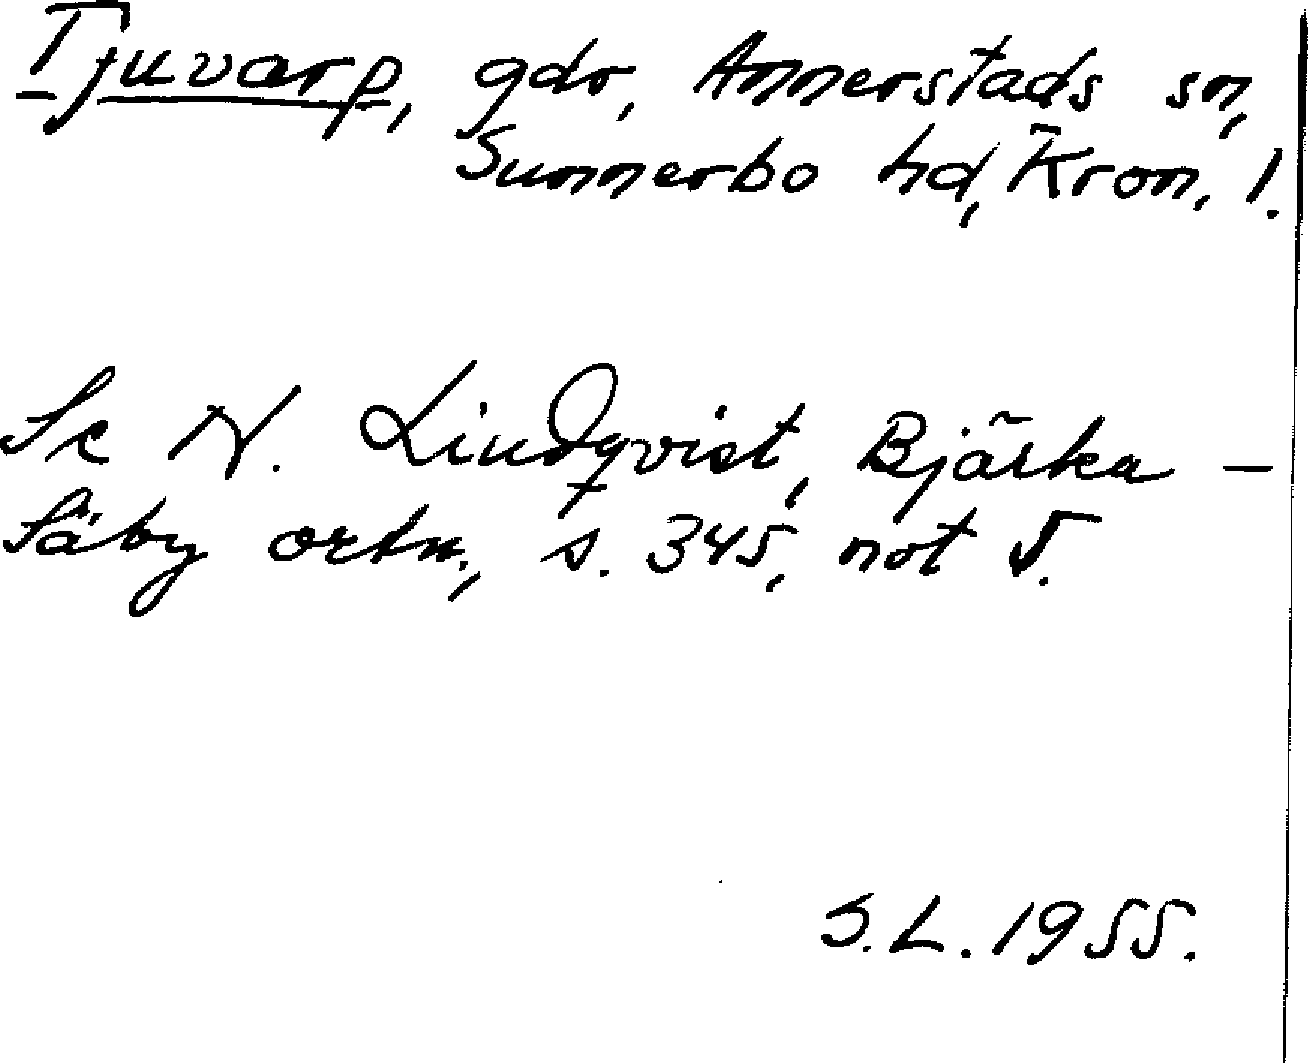 Tjuvarp, gdr, Annerstads sn,
Sunnerbo hd, Kron. l.
Se N. Lindqvist, Bjärka -
Säby ortn., s. 345, not 5.
S.L. 1955.